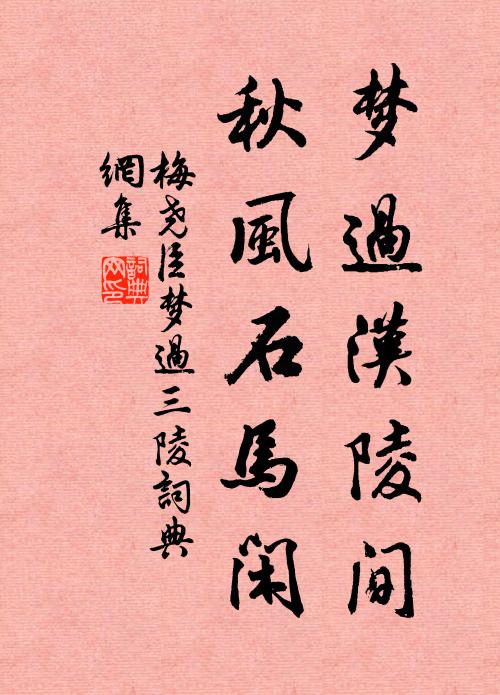 梦過漢陵間
秋風石馬闲
梅尧臣梦過三陵詞典
網集
詞典
网印